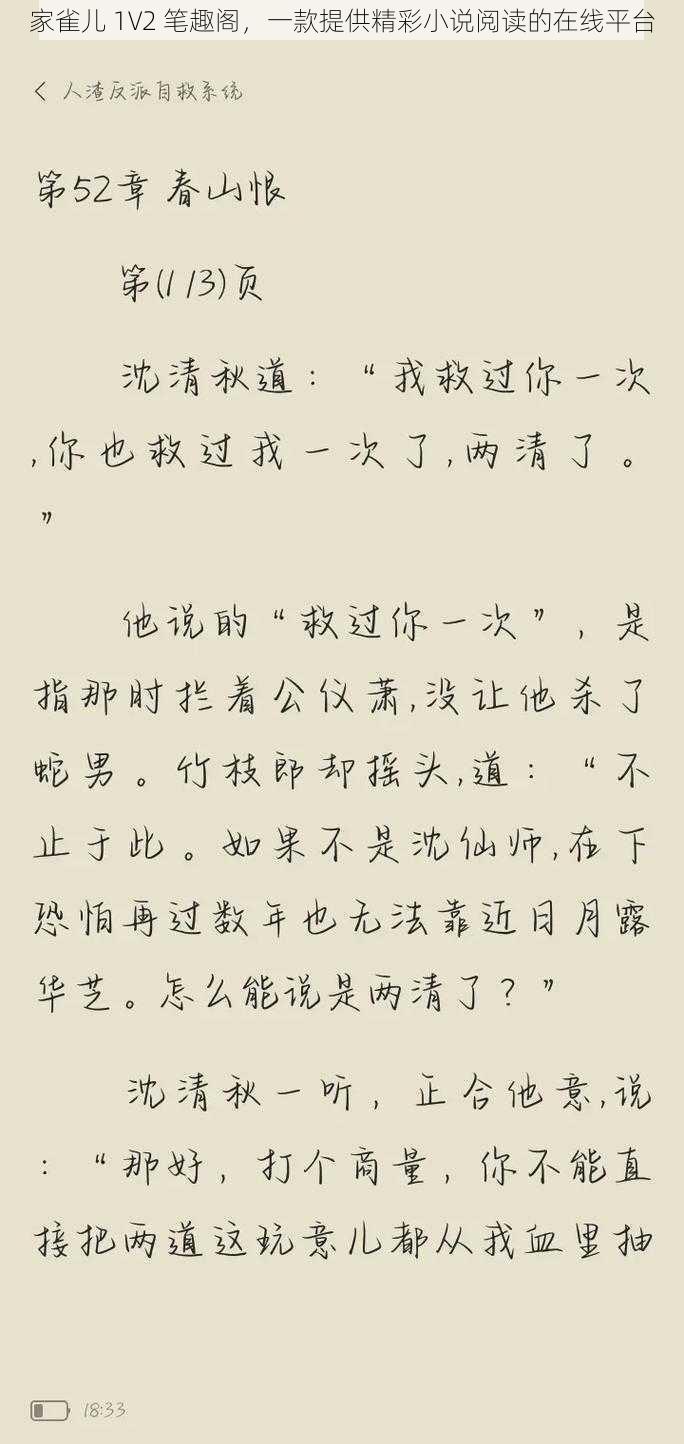 家雀儿 1V2 笔趣阁，一款提供精彩小说阅读的在线平台
< 人渣反派自救系统
第52章 春山恨
第(1/3)页
沈清秋道：“我救过你一次
,你也救过我一次了,两清了。
”
他说的“救过你一次”，是
指那时拦着公仪萧,没让他杀了
蛇男。竹枝郎却摇头,道：“不
止于此。如果不是沈仙师,在下
恐怕再过数年也无法靠近日月露
华芝。怎么能说是两清了？”
沈清秋一听，正合他意,说
：“那好，打个商量，你不能直
接把两道这玩意儿都从我血里抽
18:33